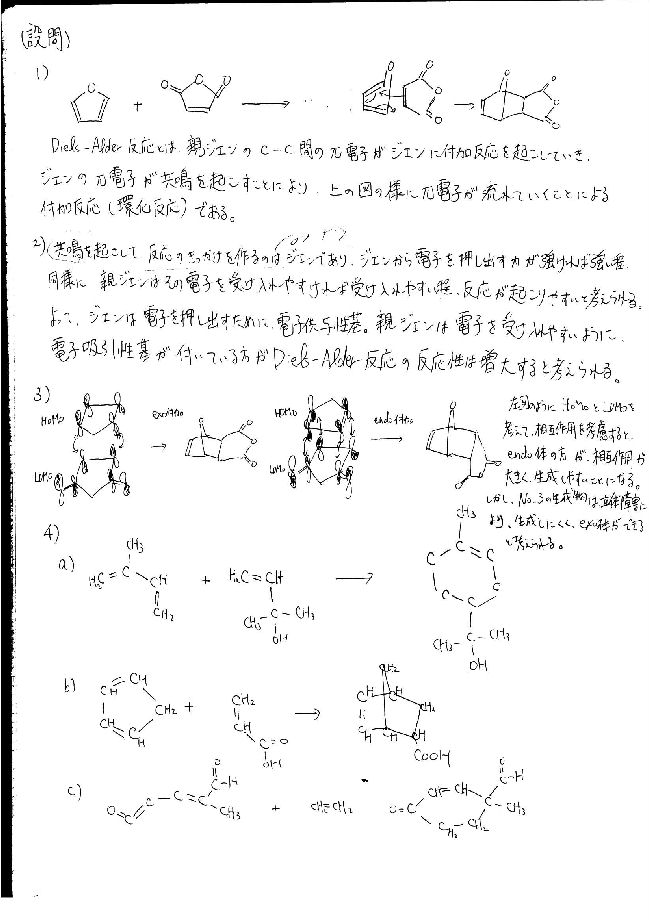 (設問)
1)
O
O O O
+
O O O O
O O O O
Diels-Alder 反応とは、親ジエンの C-C 間のπ電子がジエンに付加反応を起こしていき、
ジエンのπ電子が共鳴を起こすことにより、上の図の様にπ電子が流れていくことによる
付加反応(環化反応)である。
2) (共鳴を起こして反応のきっかけを作るのはジエンであり、ジエンから電子を押し出す力が強ければ強い程、
同様に親ジエンはその電子を受け入れやすければ受け入れやすい程、反応が起こりやすいと考えられる。
よって、ジエンは電子を押し出すために、電子供与性基。親ジエンは電子を受け入れやすいように、
電子吸引性基が付いている方がDiels-Alder反応の反応性は増大すると考えられる。
3)
HOMO
LUMO
exo付加
HOMO
LUMO
endo付加
左図のようにHOMOとLUMOを
考えて、相互作用を考慮すると、
endo体の方が、相互作用が
大きく、生成しやすいことになる。
しかし、No.3の生成物は立体障害に
より、生成しにくく、exo体ができる
と考えられる。
4)
a)
CH3
H2C=C
CH
CH2
+
H2C=CH
CH3-C-CH3
OH
CH3
C C C C C C
CH3-C-CH3
OH
b)
CH CH CH2 CH CH
+
CH2
CH
C=O
OH
CH2
CH CH CH2
CH CH CH
COOH
c)
O=C C=C
O
C-H
CH3
+
CH2=CH2
O=C
CH=CH
C-H
O
CH3
CH2 CH2